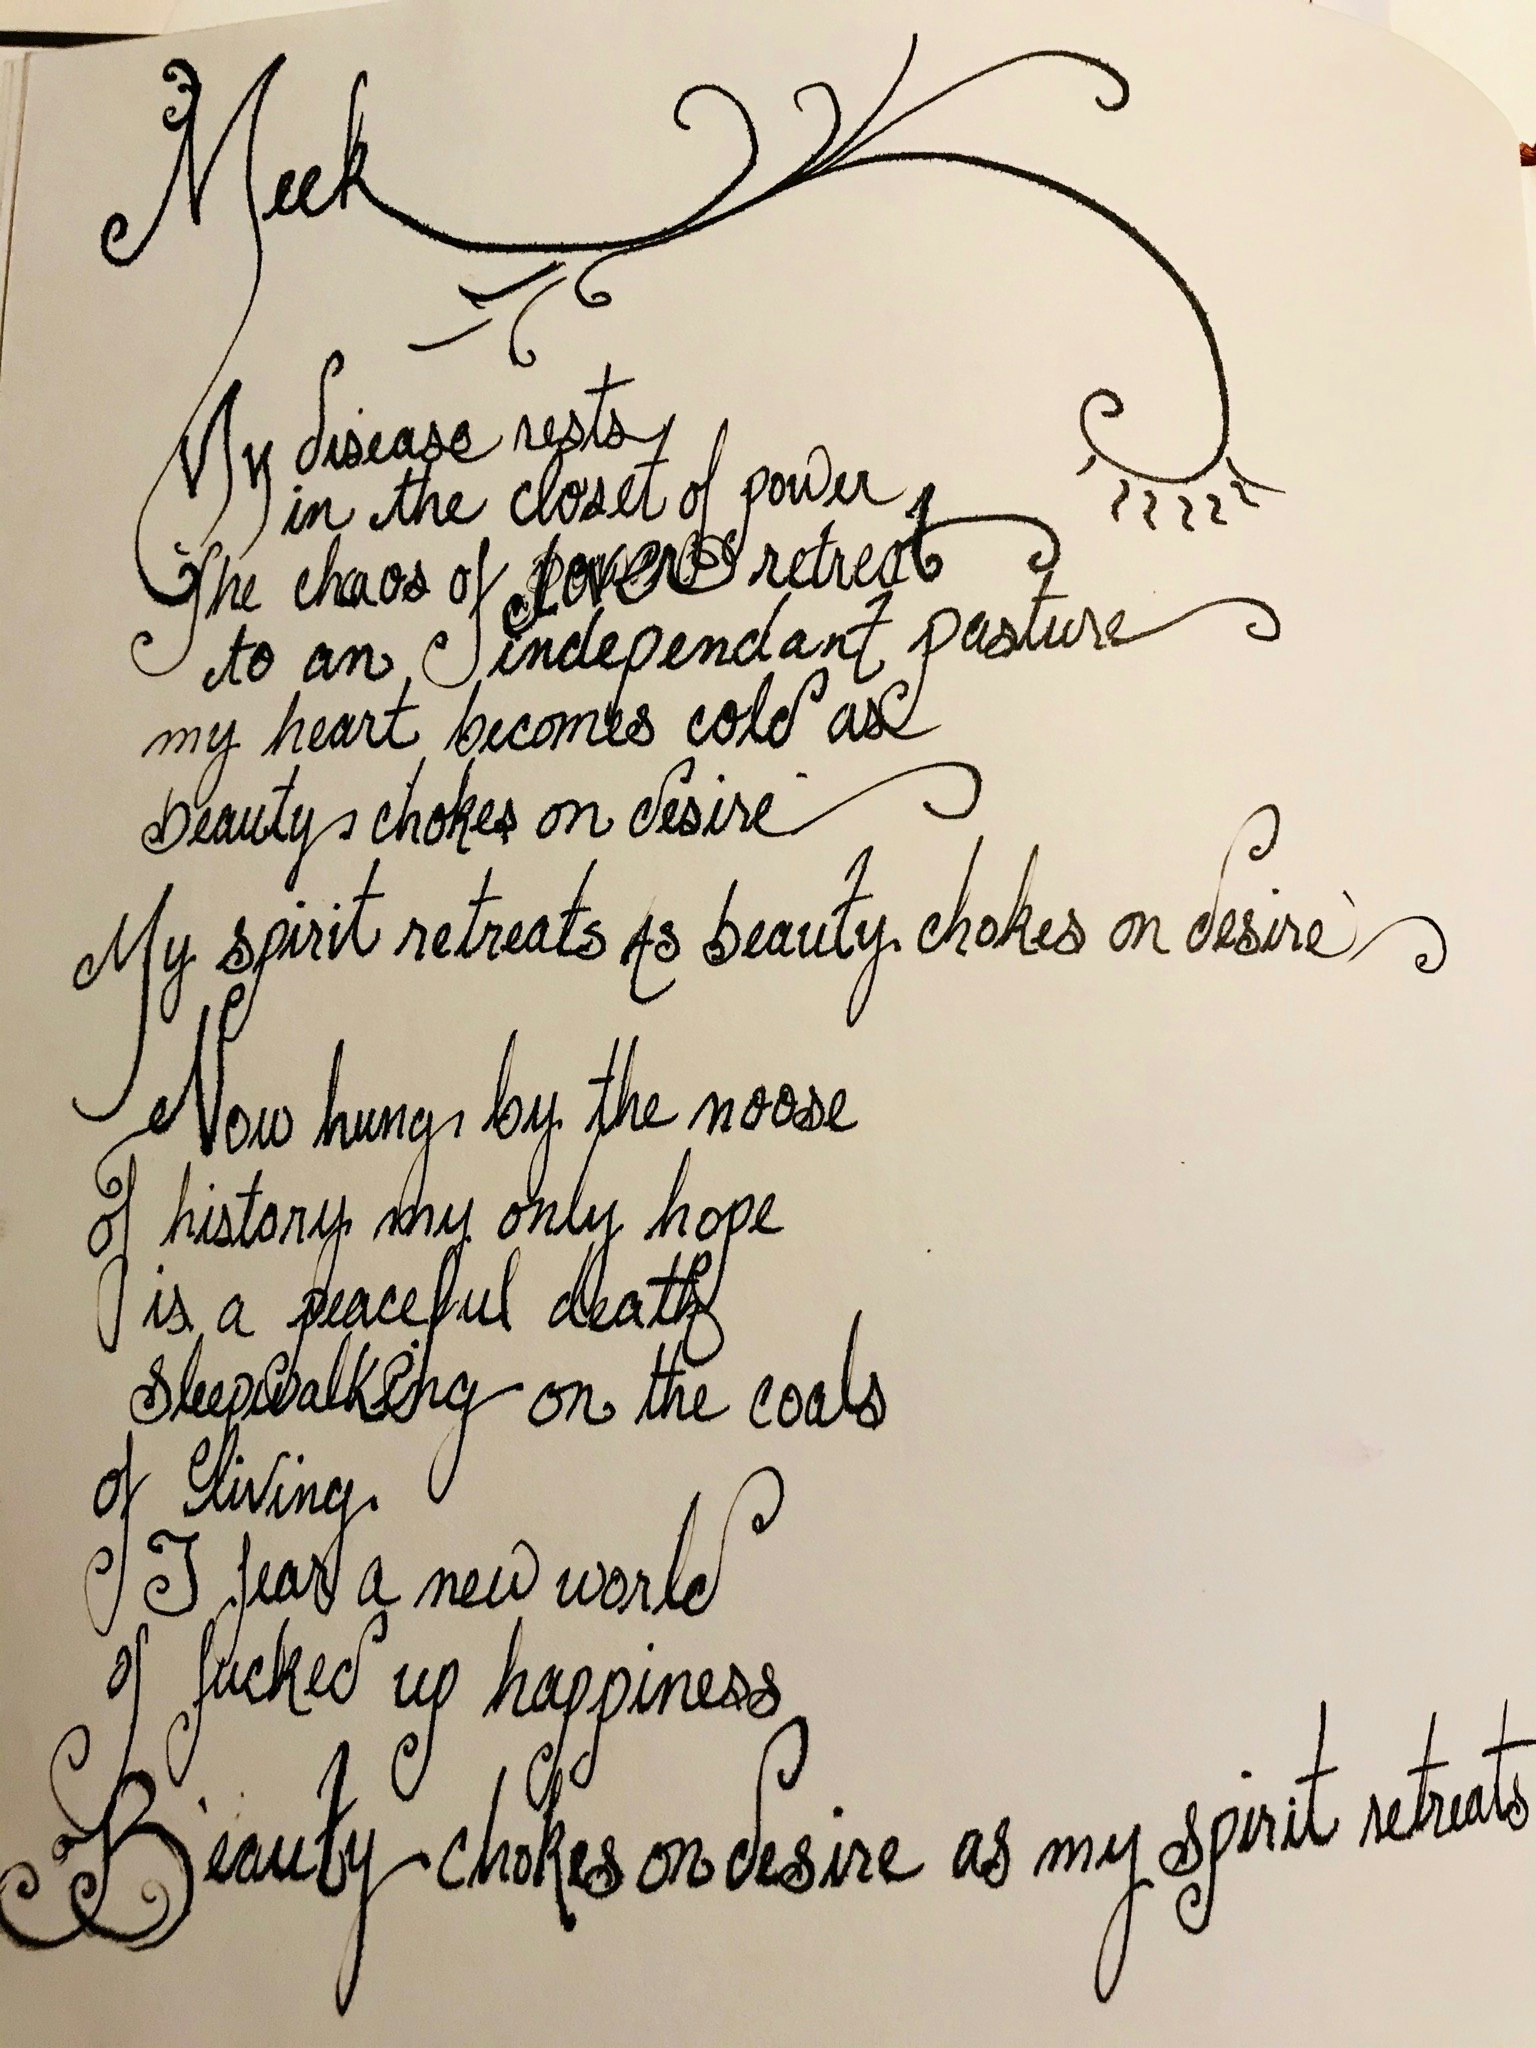 Meek
My disease rests
in the closet of power
The chaos of retreat
to an independant pasture
my heart becomes cold as
beauty chokes on desire
My spirit retreats As beauty chokes on desire
Now hung by the noose
of history my only hope
is a peaceful death
sleepwalking on the coals
of living.
I fear a new world
of fucked up happiness
Beauty chokes on desire as my spirit retreats